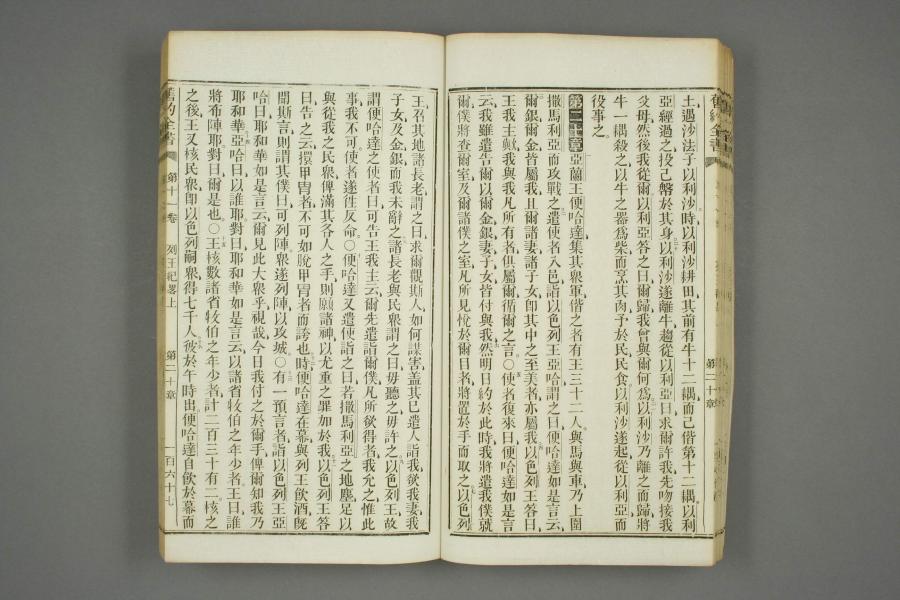 舊約全書
第二十章
土遇沙法子以利沙時以利沙耕田其前有牛十二耦而己偕第十二耦以利
亞經過之投己幣於其身以利沙遂離牛趨從以利亞曰求爾許我先吻接我
父母然後我從爾以利亞答之曰爾歸我曾與爾何爲以利沙乃離之而歸將
牛一耦殺之以牛之器爲柴而烹其肉予於民民食以利沙遂起從以利亞而
役事之
第二十章亞蘭王便哈達集其衆軍偕之者有王三十二人與馬與車乃上圍
撒馬利亞而攻戰之遣使者入邑詣以色列王亞哈謂之曰便哈達如是言云
爾銀爾金皆屬我且爾諸妻諸子女卽其中之至美者亦屬我以色列王答曰
王我主歟我與我凡所有者俱屬爾循爾之言○使者復來曰便哈達如是言
云我雖遣告爾以爾金銀妻子女皆付與我然明日約於此時我將遣我僕就
爾僕將查爾室及爾諸僕之室凡所見悅於爾目者將置於手而取之以色列
王召其地諸長老謂之曰求爾觀斯人如何謀害蓋其已遣人詣我欲我妻我
子女及金銀而我未辭之諸長老與民衆謂之曰毋聽之毋許之以色列王故
謂便哈達之使者曰可告王我主云爾先遣詣爾僕凡所欲得者我允之惟此
事我不可使者遂往反命○便哈達又遣使詣之曰若撒馬利亞之地塵足以
與從我之民衆俾滿其各人之手則願諸神以尤重之罪如於我以色列王答
曰告之云擐甲冑者不可如脫甲冑者而誇也時便哈達在幕與列王飲酒旣
聞斯言則謂其僕曰可列陣衆遂列陣以攻城○有一預言者詣以色列王亞
哈曰耶和華如是言云爾見此大衆乎視哉今日我付之於爾手俾爾知我乃
耶和華亞哈曰以誰耶對曰耶和華如是言云以諸省牧伯之年少者王曰誰
將布陣耶對曰爾是也○王核數諸省牧伯之年少者計二百三十有二核之
之後王又核民衆卽以色列嗣衆得七千人彼於午時出便哈達自飲於幕而
舊約全書
第十一卷
列王紀畧上
第二十章
一百六十七